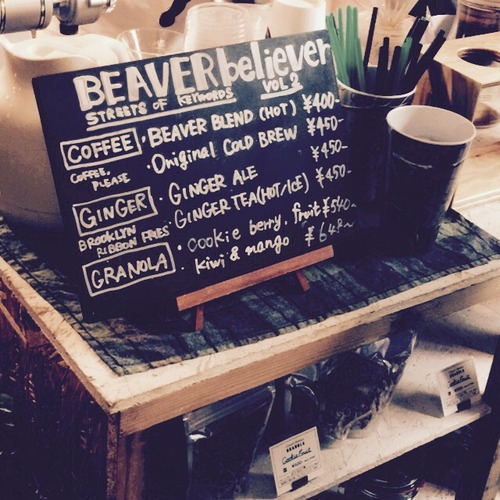 BEAVER believer
STREETS OF KEYWORDS VOL.2
COFFEE
COFFEE, PLEASE
・BEAVER BLEND (HOT) ¥400-
・Original COLD BREW ¥450-
GINGER
BROOKLYN RIBBON FRIES
・GINGER ALE ¥450-
・GINGER TEA(HOT/ICE) ¥450-
GRANOLA
・cookie berry, fruit ¥540-
・kiwi & mango ¥648-
GRANOLA
Cookie Fruit